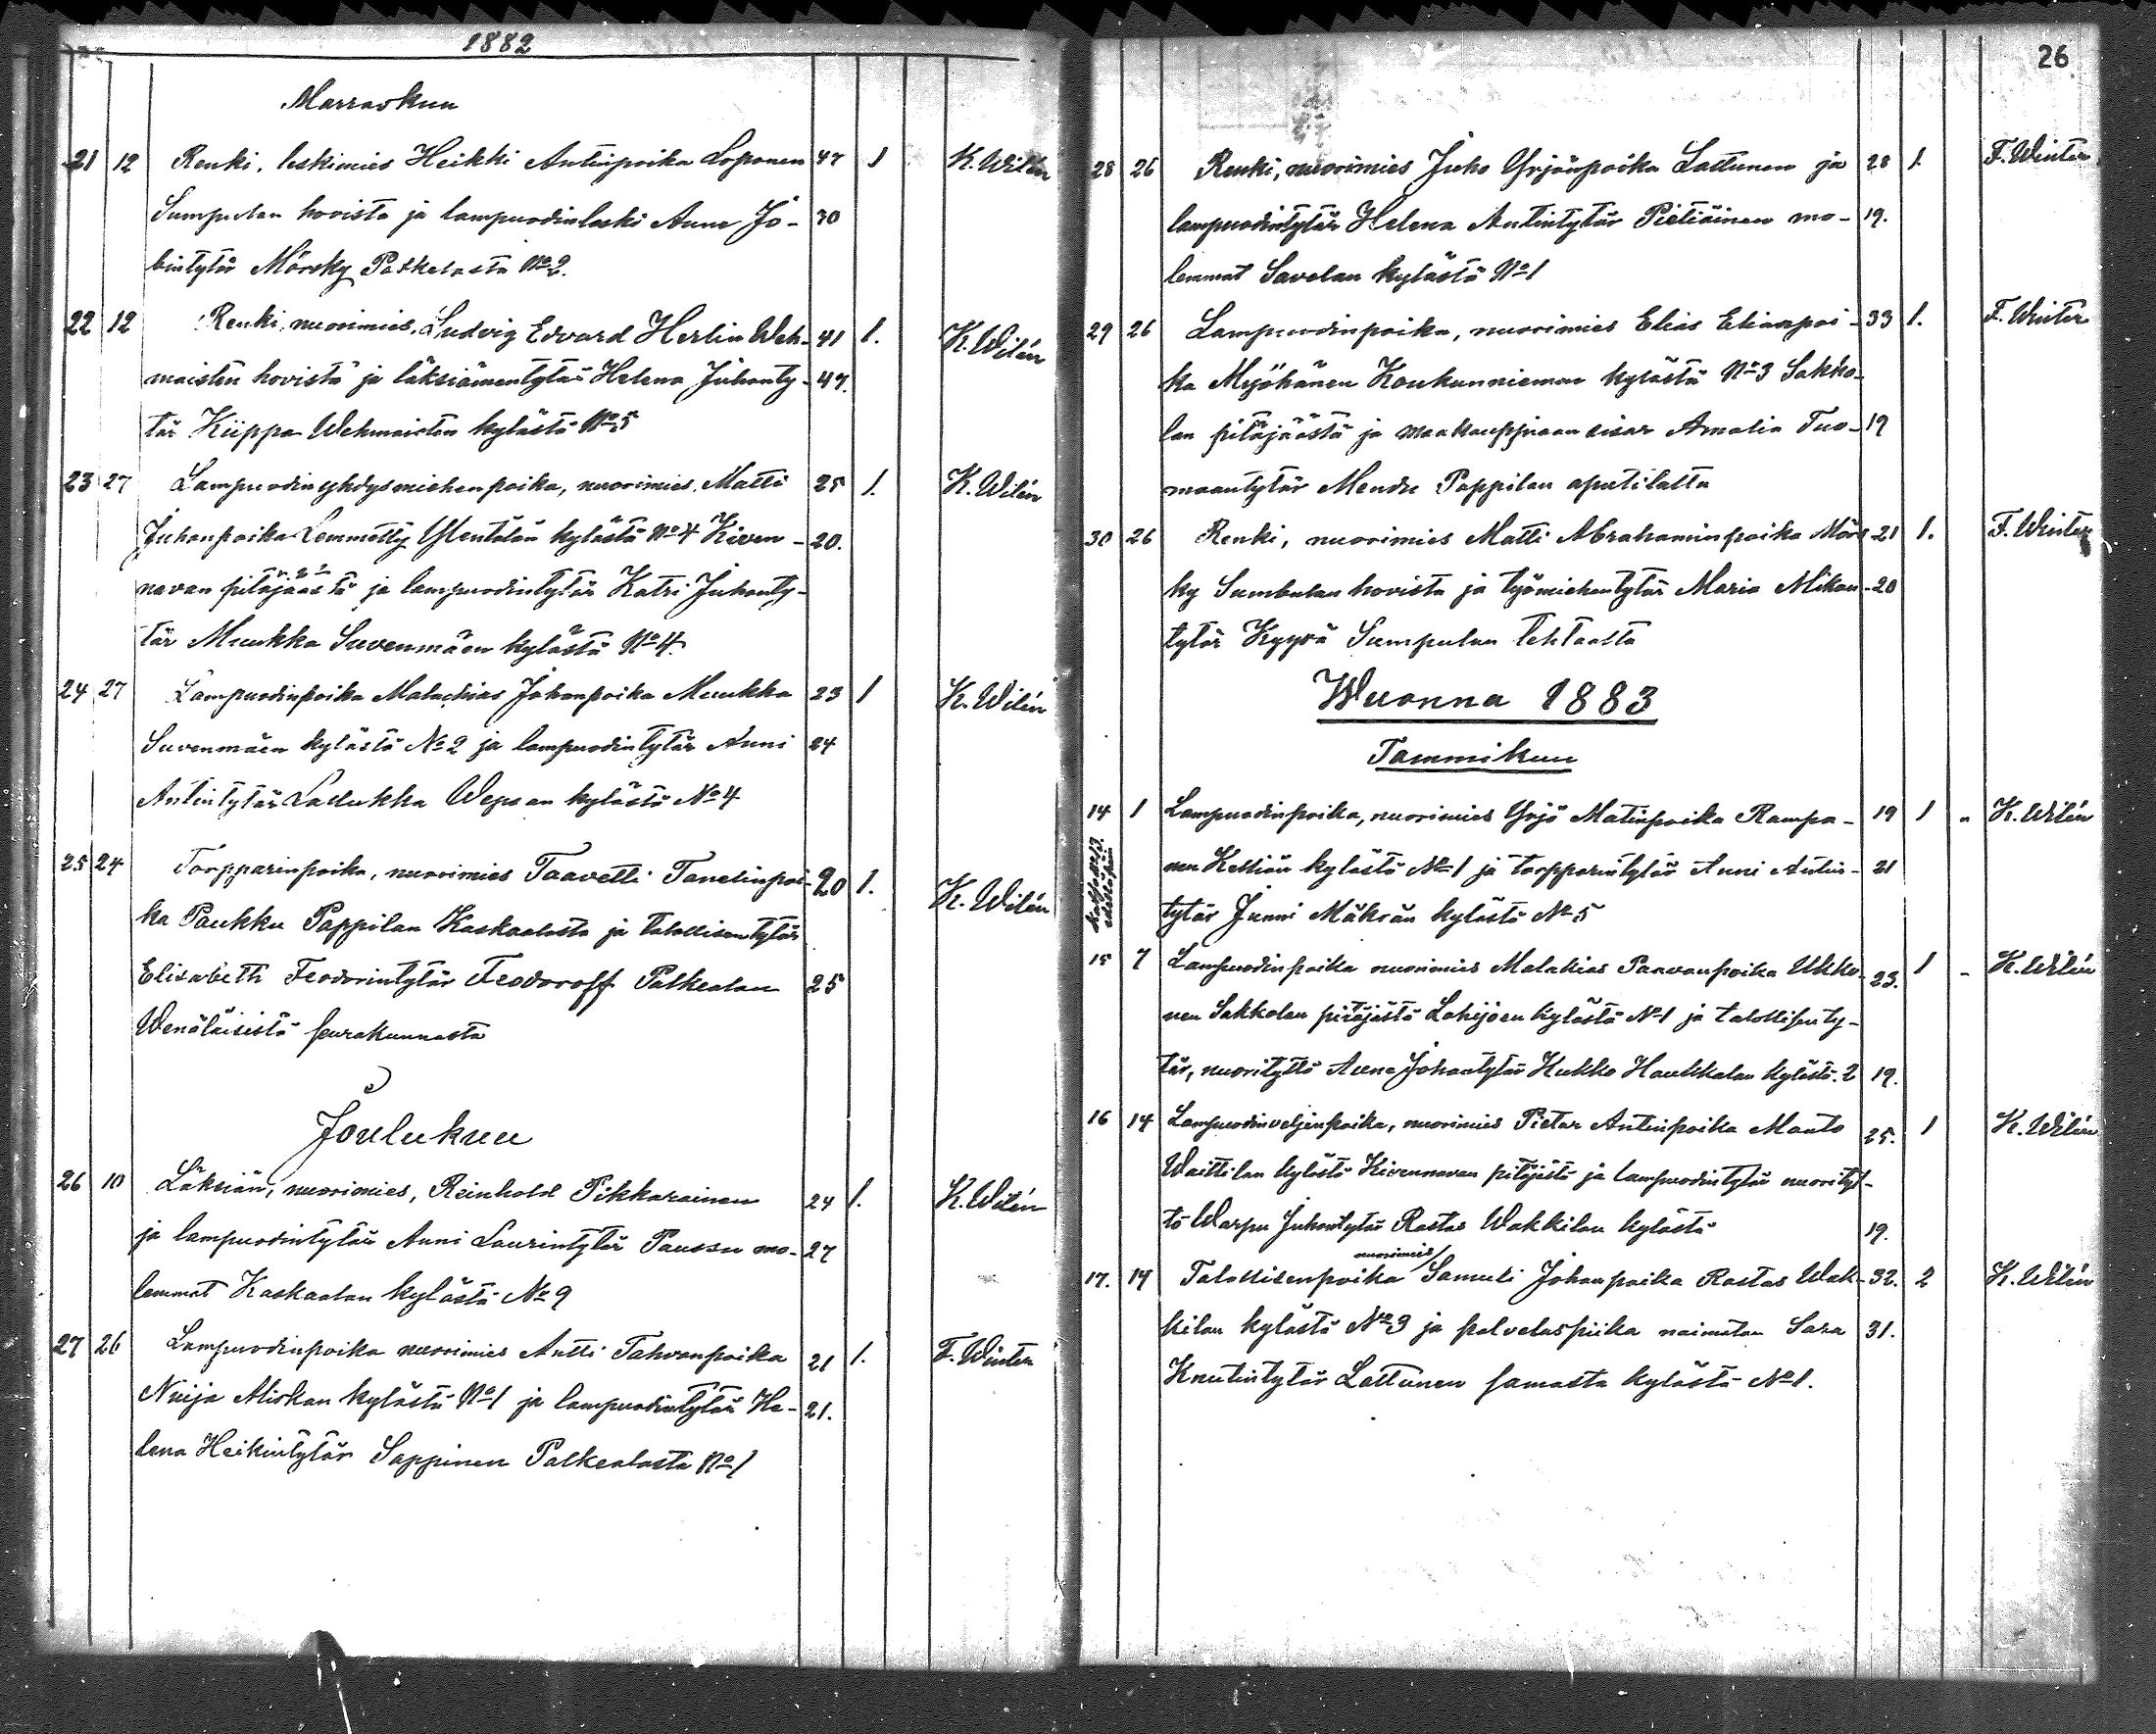 1882
Marraskuu
21 12 Renki, leskimies Heikki Antinpoika Loponen 47 1 K. Wilén
Sumpulan hovista ja lampuodinleski Anna Jo- 30
bintytär Mörsky Palkealasta No 2.
22 12 Renki, nuorimies, Ludvig Edvard Herlin Weh- 41 1. K. Wilén
maisten hovista ja läksiämentytär Helena Juhanty- 47.
tär Kiippa Wehmaisten kylästä No 5
23 27 Lampuodin yhdysmiehenpoika, nuorimies, Matti 25 1. K. Wilén
Juhanpoika Lemmetty Ylentelän kylästä No 4 Kiven- 20.
navan pitäjäästä ja lampuodintytär Katri Juhanty-
tär Muukka Suvenmäen kylästä No 4.
24 27 Lampuodinpoika Malachias Johanpoika Muukka 23 1 K. Wilén
Suvenmäen kylästä No 2 ja lampuodintytär Anni 24
Antintytär Ladukka Wepsan kylästä No 4
25 24 Torpparinpoika, nuorimies Taavetti Tanelinpoi- 20 1. K. Wilén
ka Paukku Pappilan Kaskaalasta ja talollisentytär
Elisabeth Feodorintytär Feodoroff Palkealan 25
Wenäläisistä seurakunnasta
Joulukuu
26 10 Läksiän, nuorimies, Reinhold Pikkarainen 24 1. K. Wilén
ja lampuodintytär Anni Laurintytär Paussu mo- 27
lemmat Kaskaalan kylästä No 9
27 26 Lampuodinpoika nuorimies Antti Tahvonpoika 21 1. F. Winter
Niija Miskan kylästä No 1 ja lampuodintytär He- 21.
lena Heikintytär Sappinen Palkealasta No 1
26
28 26 Renki, nuorimies Juho Yrjönpoika Lattunen ja 28 1. F. Winter
lampuodintytär Helena Antintytär Pietiäinen mo- 19.
lemmat Savolan kylästä No 1
29 26 Lampuodinpoika, nuorimies Elias Eliaspoi- 33 1. F. Winter
ka Myöhänen Koukunniemen kylästä No 3 Sakko-
lan pitäjäästä ja maakauppiaan sisar Amalia Tuo- 19
maantytär Mendu Pappilan aputilalta
30 26 Renki, nuorimies Matti Abrahaminpoika Mörs 21 1. F. Winter
ky Sumbulan hovista ja työmiehentytär Maria Mikon- 20
tytär Kyyrä Sumpulan tehtaalta
Wuonna 1883
Tammikuu
14 1 Lampuodinpoika, nuorimies Yrjö Matinpoika Rampa- 19 1 " K. Wilén
nen Kellian kylästä No 1 ja torpparintytär Anni Antin- 21
tytär Junni Mäkrän kylästä No 5
15 7 Lampuodinpoika nuorimies Malakias Paavanpoika Ukko- 23. 1 - K. Wilén
nen Sakkolan pitäjästä Lohijoen kylästä No 1 ja talollisenty-
tär, nuorityttö Anna Johantytär Kukko Haukkalan kylästä. 2 19.
16 14 Lampuodinveljenpoika, nuorimies Pietar Antinpoika Manto 25. 1 K. Wilén
Waittilan kylästä Kivennavan pitäjästä ja lampuodintytär nuorityt-
tö Warpu Juhontytär Rastas Wakkilan kylästä 19.
nuorimies
17. 14 Talollisenpoika Samuli Johanpoika Rastas Wak- 32. 2 K. Wilén
kilan kylästä No 3 ja palveluspiika naimaton Sara 31.
Knutintytär Lattunen samasta kylästä No 1.